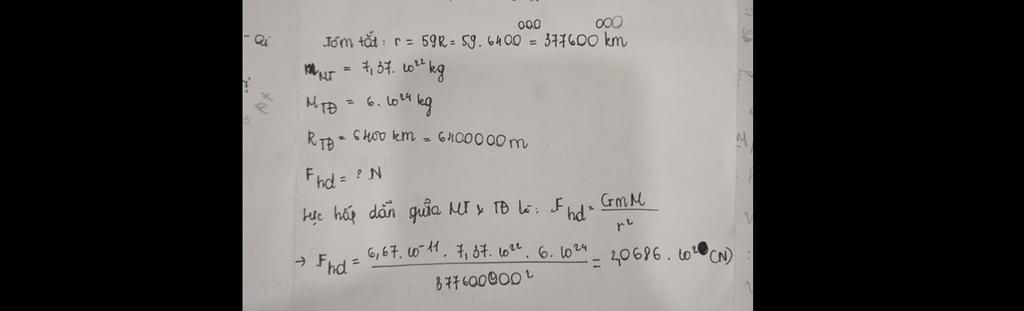 000 000
- Qi Tóm tắt: r = 59R = 59. 6400 = 377600 km
m_MT = 7,37. 10²² kg
M_TĐ = 6. 10²⁴ kg
R_TĐ = 6400 km = 6400000 m
F_hd = ? N
Lực hấp dẫn giữa MT & TĐ là: F_hd = GmM / r²
→ F_hd = 6,67. 10⁻¹¹ . 7,37. 10²² . 6. 10²⁴ / 377600000² = 2,0686 . 10² (N)